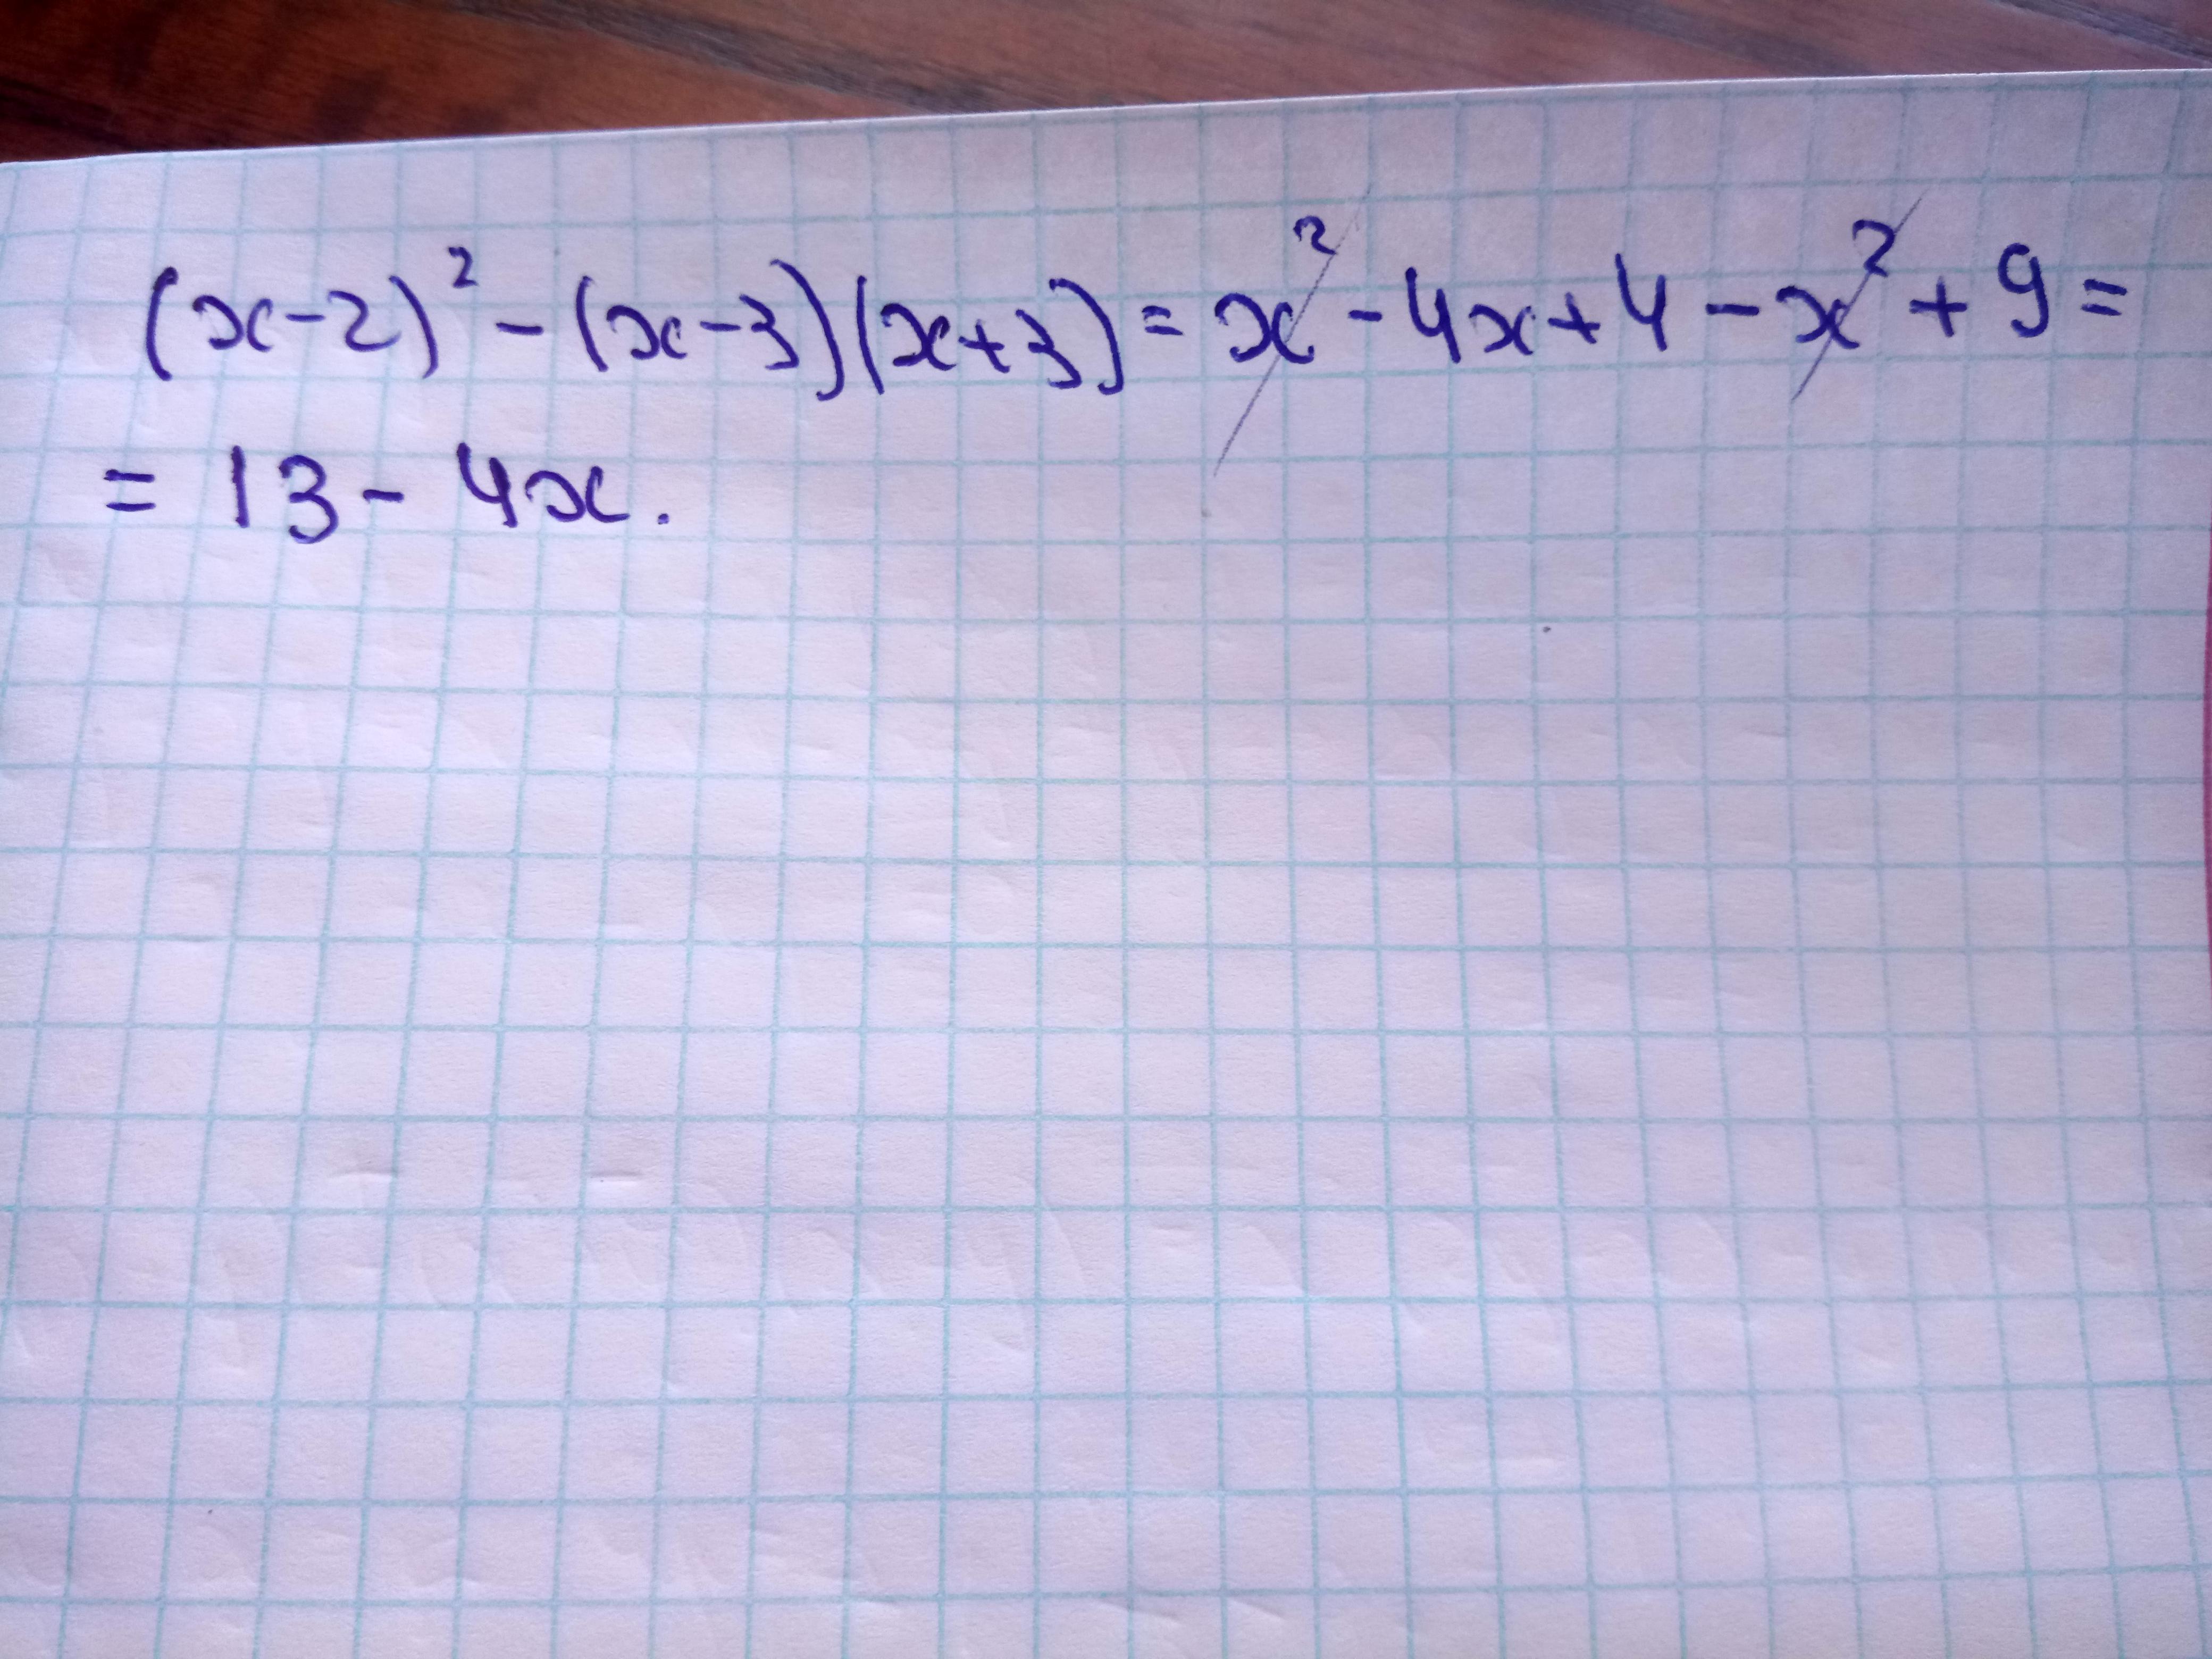 (x-2)² - (x-3)(x+3) = x² - 4x + 4 - x² + 9 =
= 13 - 4x.